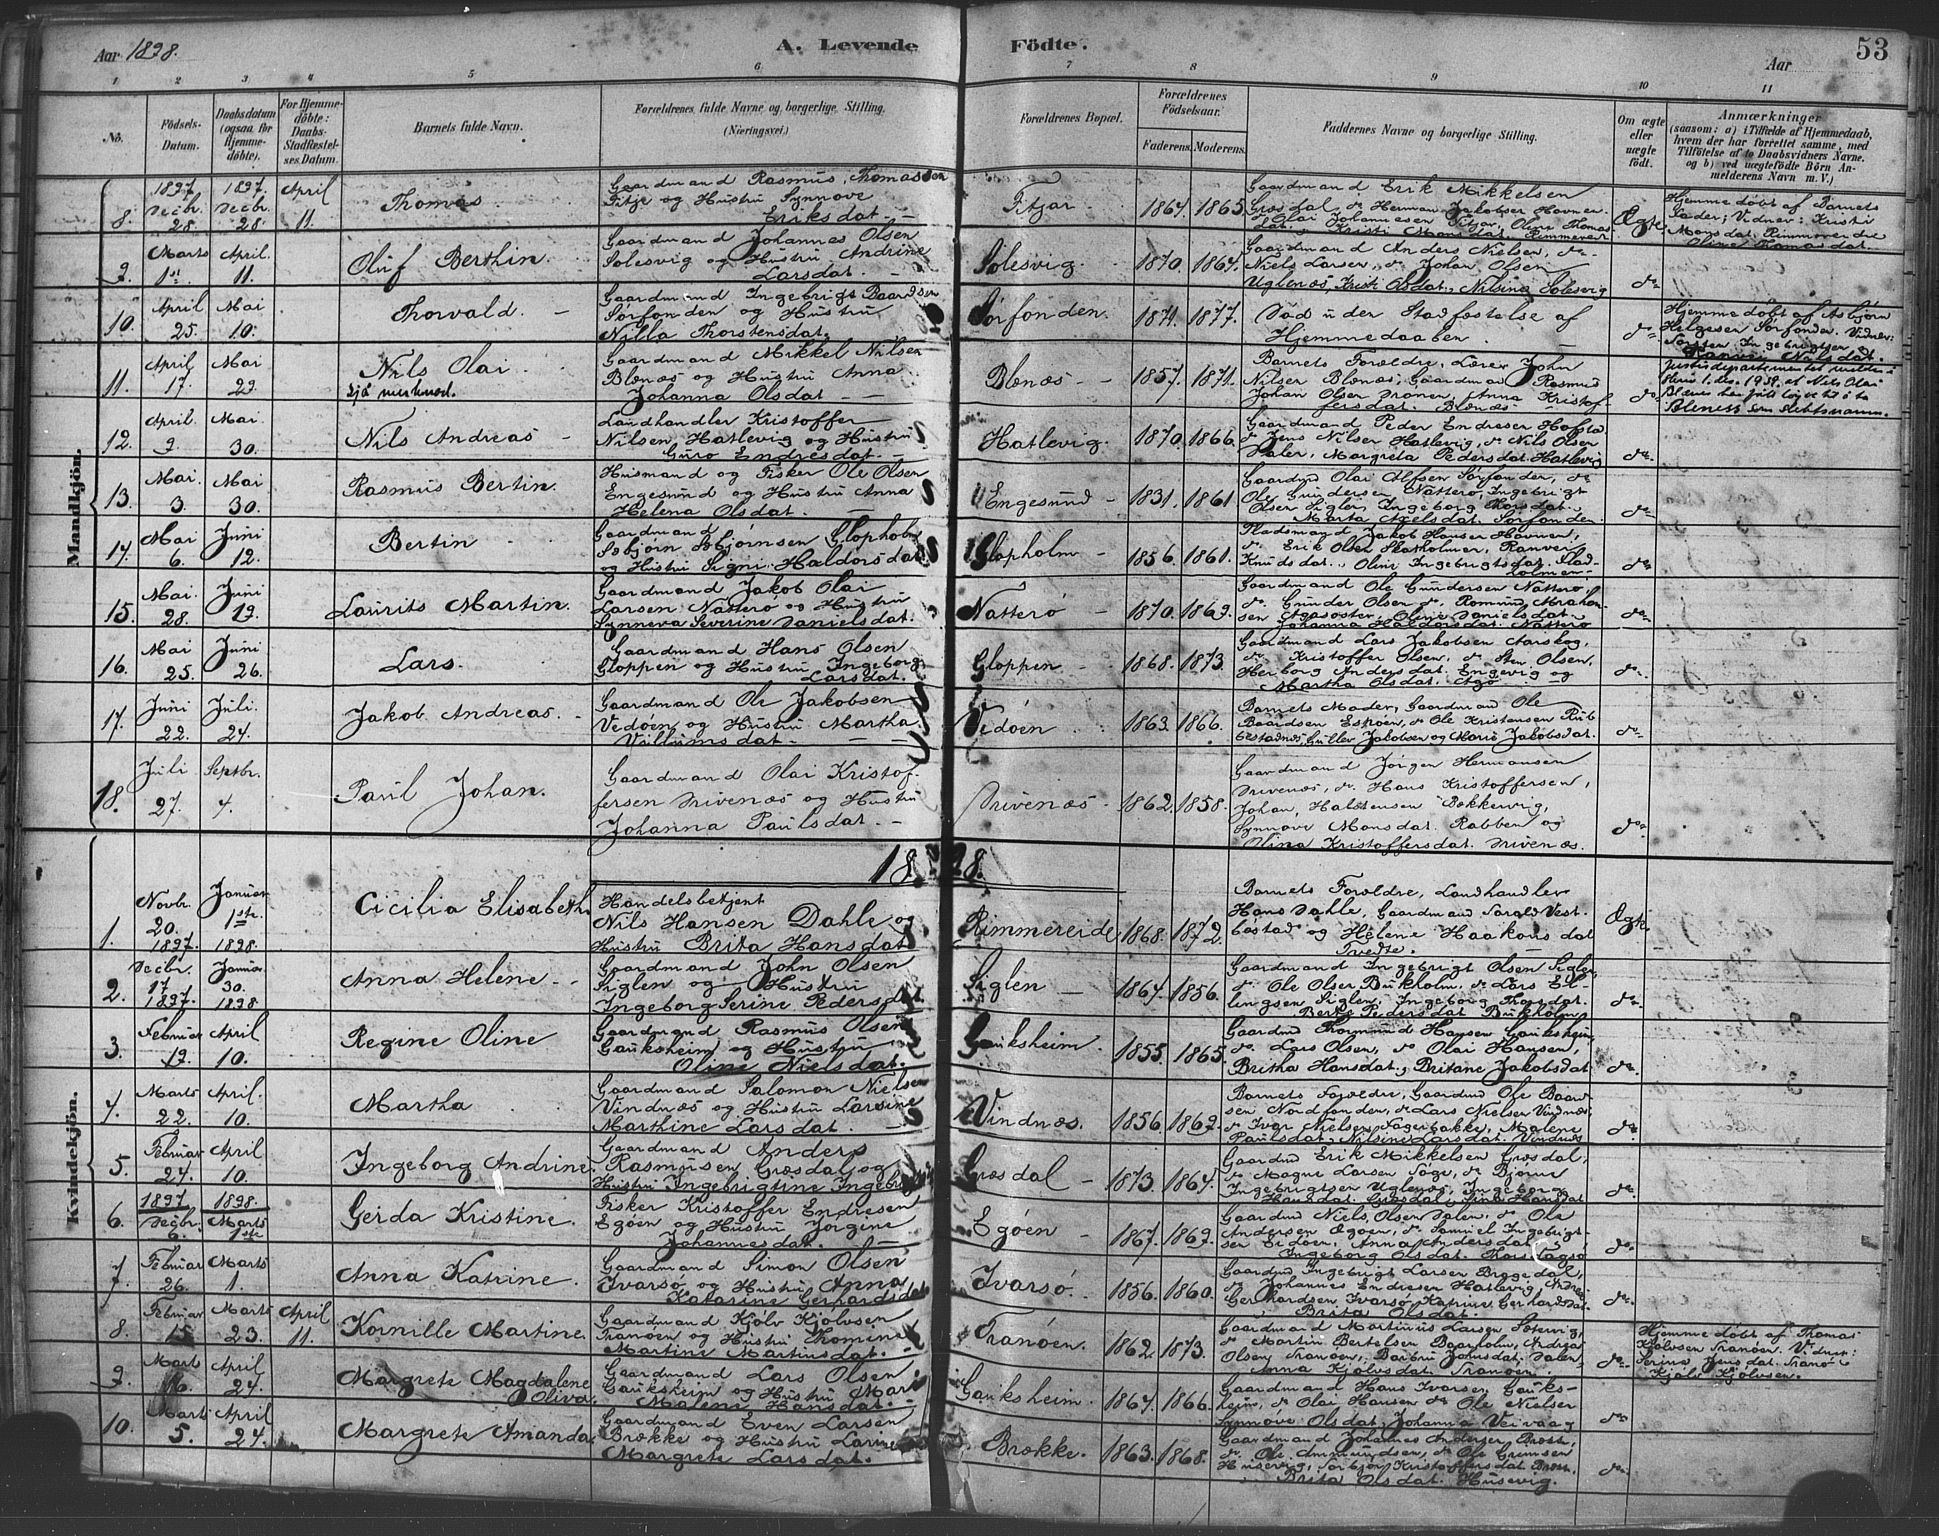 Aar 1898.
A. Levende Födte.
53
Aar
1 2 3 4 5 6 7 8 9 10 11
No.
Födsels-Datum.
Daabsdatum (ogsaa for Hjemme-döbte).
For Hjemme-döbte: Daabs-Stadfæstel-ses Datum.
Barnets fulde Navn.
Forældrenes fulde Navne og borgerlige Stilling. (Næringsvei.)
Forældrenes Bopæl.
Forældrenes Födselsaar.
Faderens. Moderens.
Faddernes Navne og borgerlige Stilling.
Om ægte eller uægte födt.
Anmærkninger
(saasom: a) i Tilfælde af Hjemmedaab, hvem der har forrettet samme, med Tilföielse af to Daabsvidners Navne. og b) ved uægtefödte Börn An-melderens Navn m. V.)
Mandkjön.
8. 1897 Decbr. 28. 1897. Decbr. 28. April 11. Thomas.
Gaardmand Rasmus Thomassen
Fitje og Hustru Synnove
Eriksdat
Fitjar 1864. 1865.
Gaardmand Erik Mikkelsen
Græsdal, do Herman Jakobsen Hovner
Ægte
Hjemmedöbt af Barnets
Fader; Vidner: Kristi
Monsdat. Rimmereide
Oline Thomasdat.
9. Marts 1st April. 11. Oluf Berthin.
Gaardmand Johannes Olsen
Solesvig og Hustru Andrine
Larsdat.
Solesvig. 1870. 1864.
Gaardmand Anders Nielsen, do
Niels Larsen, do Johan Olsen
Uglenæs, Kristi Olsdat., Nilsina Solesvig
do
10. April 25. Mai 10. Thorvald.
Gaardmand Ingebrigt Baardsen
Sørfonden og Hustru
Nilla Thorstensdat.
Sørfonden. 1871. 1877.
Död u der Stadfæstelse af
Hjemmedaaben.
do
Hjemmedöbt af Asbjörn
Helgesen Sørfonden. Vidner:
Torsten Ingebrigtsen o
Ranvei Nilsdat.
11. April 17. Mai 29. Nils Olai
sjå merknad.
Gaardmand Mikkel Nilsen
Blænæs og Hustru Anna
Johanna Olsdat
Blænæs 1857. 1871.
Barnets Forældre, Lærer John
Nilsen Blænæs, Gaardmand Rasmus
Johan Olsen, Anna Kristof
fersdat. Blænæs
do
Justisdepartementet melder i
skriv 1. des. 1939. at Nils Olai
Blænes har fått løyve til å ta
Bleness som slektsnamn.
12. April. 9. Mai 30. Nils Andreas
Landhandler Kristoffer
Nilsen Hatlevig og Hustru
Guro Endresdat
Hatlevig. 1870. 1866.
Gaardmand Peder Endresen Hofsta
do Jens Nilsen Hatlevig, do Nils Olsen
Dalen, Margreta Pedersdat. Hatlevig
do
13. Mai. 3. Mai 30. Rasmus Bertin.
Husmand og Fisker Ole Olsen
Engesund og Hustru Anna
Helena Olsdat.
Engesund 1831. 1861
Gaardmd Olai Olsen Sørfonden, do
Ole Gundersen Natterø, Ingebrigt
Olsen Siglen, Ingeborg Thorsdat.
Marta Axelsdat. Sørfonden.
do
14. Mai 6. Juni 12. Bertin
Gaardmand
Asbjørn Asbjørnsen Glopholm
og Hustru Signi Haldorsdat
Glopholm 1856. 1861.
Pladsmand Jakob Hansen Hovner,
do Erik Olsen Skatholmen, Ranvei
Knudsdat., Olini Ingebrigtsdat.
do
15. Mai. 28. Juni 19. Laurits Martin.
Gaardmand Jakob Olai
Larsen Natterø og Hustru
Synneva Severine Danielsdat.
Natterø 1870. 1869.
Gaardmand Ole Gundersen Natterø
do Gunder Olsen do, Romund Abraham
sen Agasøster, Oline Danielsdat.
Johanna Haldorsdat. Natterø
do
16. Mai 25. Juni 26. Lars.
Gaardmand Hans Olsen
Gloppen og Hustru Ingeborg
Larsdat.
Gloppen 1868. 1873.
Gaardmand Lars Jakobsen Aarskog,
do Kristoffer Olsen, do Sten Olsen,
Herborg Andersdat. Engevig og
Martha Olsdat. Agø
do
17. Juni 22. Juli. 24. Jakob Andreas.
Gaardmand Ole Jakobsen
Vedøen og Hustru Martha
Villumsdat.
Vedøen 1863. 1866.
Barnets Moder, Gaardmand Ole
Baardsen Eskøen, do Ole Kristensen Rub
bestadnæs, Gullev Jakobsen og Marie Jakobsdat.
do
18. Juli 27. Septbr. 4. Paul Johan.
Gaardmand Olai Kristof-
fersen Drivenæs og Hustru
Johanna Paulsdat.
Drivenæs 1862. 1858.
Gaardmand Jørgen Hermansen
Drivenæs, do Hans Kristoffersen,
Johan Halstensen Bekkervig,
Synnove Monsdat. Rabben og
Olina Kristoffersdat. Drivenæs.
do
1898.
Kvindekjön.
1. Novbr. 20. 1897. Januar 1ste 1898. Cicilia Elisabeth
Handelsbetjent
Nils Hansen Dahle og
Hustru Brita Hansdat
Rimmereide, 1868. 1872.
Barnets Forældre, Landhandler
Hans Dahle, Gaardmand Harald Vest-
bøstad og Helene Haakonsdat
Tvedte.
Ægte
2. Decbr. 17 1897. Januar. 30. 1898 Anna Helene
Gaardmand John Olsen
Siglen og Hustru
Ingeborg Serine Pedersdat.
Siglen 1864. 1856.
Gaardmand Ingebrigt Olsen Siglen,
do Ole Olsen Bukholm, do Lars El-
lingsen Siglen, Ingeborg Thorsdat.
Berte Pedersdat Bukholm
do
3. Februar 19. April 10. Regine Oline
Gaardmand Rasmus Olsen
Gauksheim og Hustru
Oline Nielsdat.
Gauksheim. 1855. 1865.
Gaardmd Thormund Hansen Gauksheim,
do Lars Olsen, do Olai Hansen,
Britha Hansdat., Britane Jakobsdat
do
4. Marts 22. April. 10. Martha
Gaardmand Salomon Nielsen
Vindnæs og Hustru Larsine
Marthine Larsdat.
Vindnæs. 1856. 1869.
Barnets Forældre, Gaardmd Ole Baard
sen Nordfonden, do Lars Nielsen Vindnæs,
do Ivar Nielsen Fagerbakke, Malene
Paulsdat, Nilsine Larsdat. Vindnæs
do
5. Februar 24. April 10. Ingeborg Andrine
Gaardmand Anders
Rasmusen Græsdal og
Hustru Ingebrigtine Ingebr
Græsdal 1873. 1864.
Gaardmd Erik Mikkelsen Græsdal,
do Magne Larsen Tøge, do Bjørne
Ingebrigtsen Uglenæs, Ingeborg
Hansdat. Græsdal, Sina Hansdat
do
6. 1897 Decbr. 6. 1898. Marts 1ste Gerda Kristine.
Fisker Kristoffer Endresen
Egøen og Hustru Jørgene
Johannesdat.
Egøen 1867. 1869.
Gaardmd Niels Olsen Dalen, do Ole
Andersen Øgøen, do Samuel Ingebrigt-
sen Eidøen, Anna Andersdat.
Ingeborg Olsdat.
do
7. Februar 26. Marts 1. Anna Katrine.
Gaardmand Simon Olsen
Ivarsø og Hustru Anna
Katarine Gerhardsdat
Ivarsø. 1856. 1860.
Gaardmd Ingebrigt Larsen Byggedal,
do Johannes Endresen Hatlevig, Andreas
Gerhardsen Ivarsø, Katrine Gerhardsdat
Brita Olsdat.
do
8. Februar 15 Marts 23. April 11. Kornille Martine.
Gaardmand Kjolv Kjolvsen
Tranøen og Hustru Thomine
Martine Martinsdat.
Tranøen. 1862. 1873.
Gaardmand Martinus Larsen Solevig,
do Martin Bertelsen Baarholm, Andreas
Olsen Tranøen, Barbru Johnsdat. Dalen
Anna Kjolvsdat Tranøen.
do
Hjemmedöbt af Thomas
Kjolvsen Tranøen. Vidner:
Serina Jensdat. Tranø
Kjolv Kjolvsen.
9. Mart 16. April 24. Margrete Magdalene
Oliva.
Gaardmand Lars Olsen
Gauksheim og Hustru Mari
Malene Hansdat.
Gauksheim. 1864. 1866.
Gaardmand Hans Ivarsen Gauks-
heim, do Olai Hansen do Ole Nielsen
Synnove Olsdat, Johanna Veivaag
do
10. Marts 5. April 24. Margrete Amanda.
Gaardmand Even Larsen
Brække og Hustru Larine
Margrete Larsdat.
Brække. 1863. 1868.
Gaardmand Johannes Andersen
do Ole Ammundsen, do Ole Grimsen
Husevig, Torbjør Kristoffersdat
Brita Olsdat. Husevig.
do